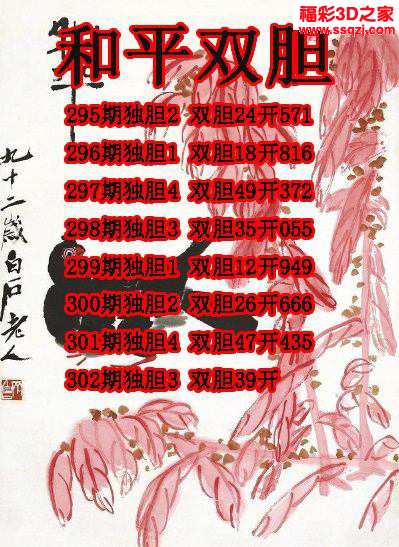 福彩3D之家
www.ssqzj.com
和平双胆
295期独胆2 双胆24开571
296期独胆1 双胆18开816
297期独胆4 双胆49开372
298期独胆3 双胆35开055
299期独胆1 双胆12开949
300期独胆2 双胆26开666
301期独胆4 双胆47开435
302期独胆3 双胆39开
九十二岁白石老人